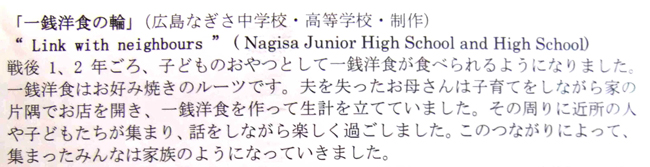 「一銭洋食の輪」（広島なぎさ中学校・高等学校・制作）
“ Link with neighbours ” ( Nagisa Junior High School and High School)
戦後 1、2 年ごろ、子どものおやつとして一銭洋食が食べられるようになりました。
一銭洋食はお好み焼きのルーツです。夫を失ったお母さんは子育てをしながら家の
片隅でお店を開き、一銭洋食を作って生計を立てていました。その周りに近所の人
や子どもたちが集まり、話をしながら楽しく過ごしました。このつながりによって、
集まったみんなは家族のようになっていきました。